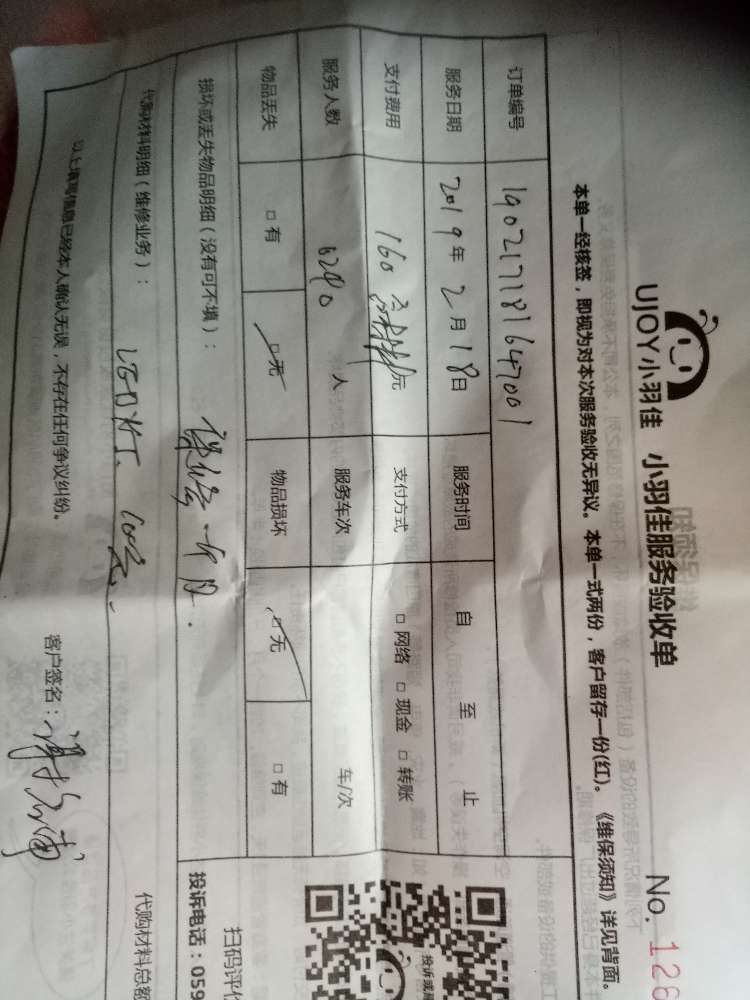 UJOY小羽佳 小羽佳服务验收单 No. 126
本单一经核签，即视为对本次服务验收无异议。本单一式两份，客户留存一份(红)。《维保须知》详见背面。
订单编号 190217181647001
服务日期 2019年2月18日 服务时间 自 至 止
支付费用 160 元 支付方式 □网络 □现金 □转账
服务人数 6240 人 服务车次 车/次
物品丢失 □有 □无 物品损坏 □无 □有
损坏或丢失物品明细（没有可不填）：
代购材料明细（维修业务）： LED灯 代购材料总额
以上填写信息已经本人确认无误，不存在任何争议纠纷。
客户签名：
扫码评价
投诉电话：059
投诉或